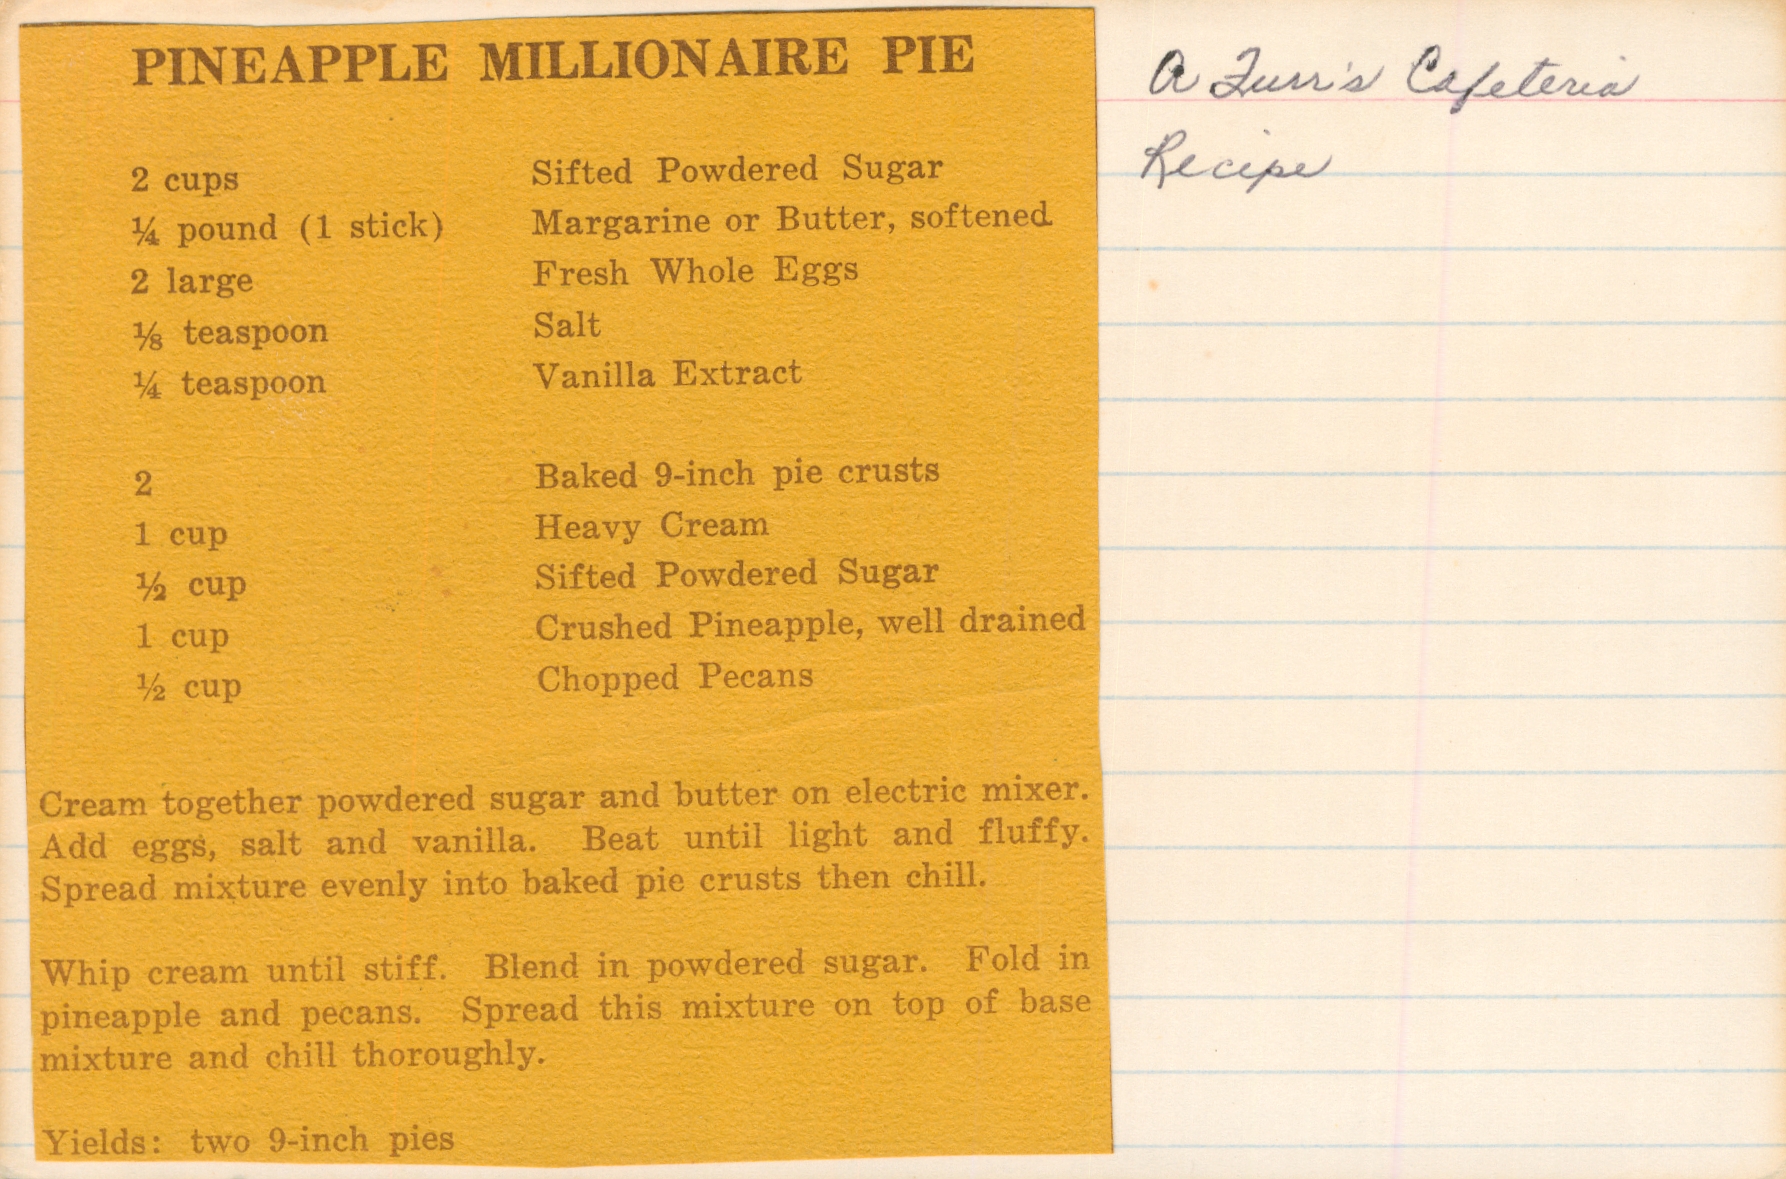 PINEAPPLE MILLIONAIRE PIE
2 cups Sifted Powdered Sugar
¼ pound (1 stick) Margarine or Butter, softened
2 large Fresh Whole Eggs
⅛ teaspoon Salt
¼ teaspoon Vanilla Extract
2 Baked 9-inch pie crusts
1 cup Heavy Cream
½ cup Sifted Powdered Sugar
1 cup Crushed Pineapple, well drained
½ cup Chopped Pecans
Cream together powdered sugar and butter on electric mixer.
Add eggs, salt and vanilla. Beat until light and fluffy.
Spread mixture evenly into baked pie crusts then chill.
Whip cream until stiff. Blend in powdered sugar. Fold in
pineapple and pecans. Spread this mixture on top of base
mixture and chill thoroughly.
Yields: two 9-inch pies
A Furr's Cafeteria
Recipe